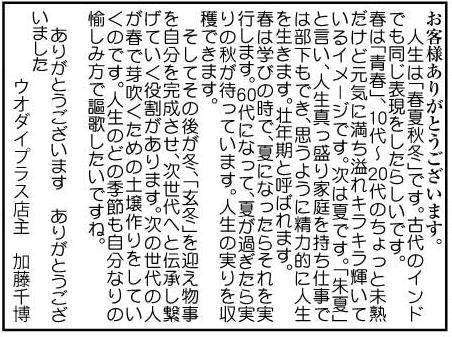 お客様ありがとうございます。
人生は「春夏秋冬」です。古代のインド
でも同じ表現をしたらしいです。
春は「青春」、10代～20代のちょっと未熟
だけど元気に満ち溢れキラキラ輝いて
いるイメージです。次は夏です。「朱夏」
と言い、人生真っ盛り家庭を持ち仕事で
は部下もでき、思うように精力的に人生
を生きます。壮年期と呼ばれます。
春は学びの時で、夏になったらそれを実
行します。60代になって、夏が過ぎたら実
りの秋が待っています。人生の実りを収
穫できます。
そしてその後が冬、「玄冬」を迎え物事
を自分を完成させ、次世代へと伝承し繋
げていく役割があります。次の世代の人
が春で芽吹くための土壌作りをしてい
くのです。人生のどの季節も自分なりの
愉しみ方で謳歌したいですね。
ありがとうございます　ありがとうござ
いました
ウオダイプラス店主　加藤千博